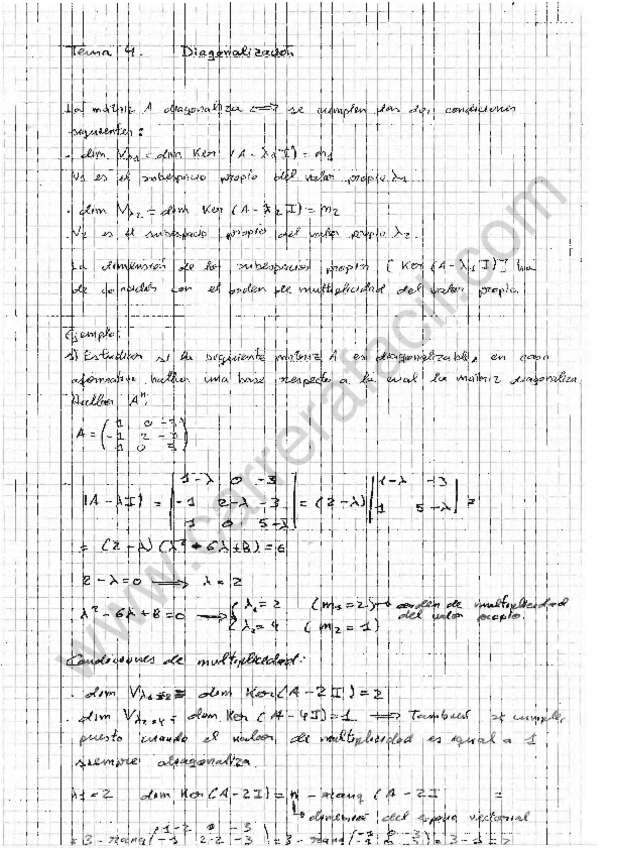 Tema 4. Diagonalización
La matriz A diagonaliza <=> se cumplen las dos condiciones
siguientes:
· dim Vλ1 = dim Ker (A - λ1 I) = m1
V1 es el subespacio propio del valor propio λ1
· dim Vλ2 = dim Ker (A - λ2 I) = m2
V2 es el subespacio propio del valor propio λ2.
La dimensión de los subespacios propios [Ker (A - λ1 I)] ha
de coincidir con el orden de multiplicidad del valor propio.
Ejemplo:
Estudiar si la siguiente matriz A es diagonalizable, en caso
afirmativo hallar una base respecto a la cual la matriz diagonaliza
Hallar A^n.
A = ( 1 0 -3
-1 2 -3
1 0 5 )
|A - λI| = | 1-λ 0 -3
-1 2-λ -3
1 0 5-λ | = (2-λ) | 1-λ -3
1 5-λ | =
= (2-λ)(λ² - 6λ + 8) = 0
2-λ = 0 => λ = 2
λ² - 6λ + 8 = 0 => { λ1 = 2 (m1 = 2) -> orden de multiplicidad
del valor propio.
λ2 = 4 (m2 = 1)
Condiciones de multiplicidad:
· dim Vλ1=2 = dim Ker (A - 2I) = 2
· dim Vλ2=4 = dim Ker (A - 4I) = 1 => También se cumple,
puesto cuando el valor de multiplicidad es igual a 1
siempre diagonaliza.
λ1 = 2 dim Ker (A - 2I) = n - rang (A - 2I =
dimensión del espacio vectorial
= 3 - rang ( 1-2 0 -3
-1 2-2 -3
www.carrerafacil.com